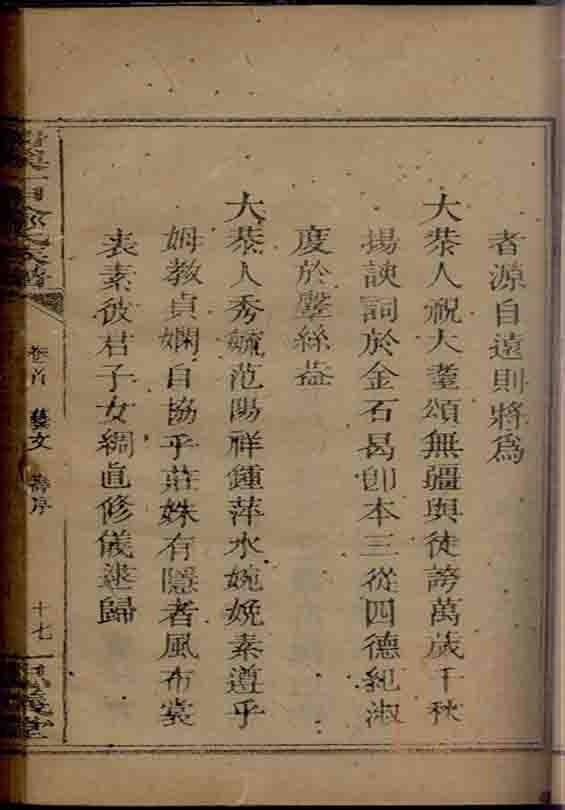 者源自遠則將爲
大恭人祝大耋頌無疆與徒誇萬歲千秋
揚諛詞於金石曷卽本三從四德紀淑
度於鞶絲葢
大恭人秀毓范陽祥鍾萍水婉娩素遵乎
姆教貞嫻自協乎莊姝有隱者風布裳
表素彼君子女綢直修儀逮歸
卷首 藝文 壽序
十七